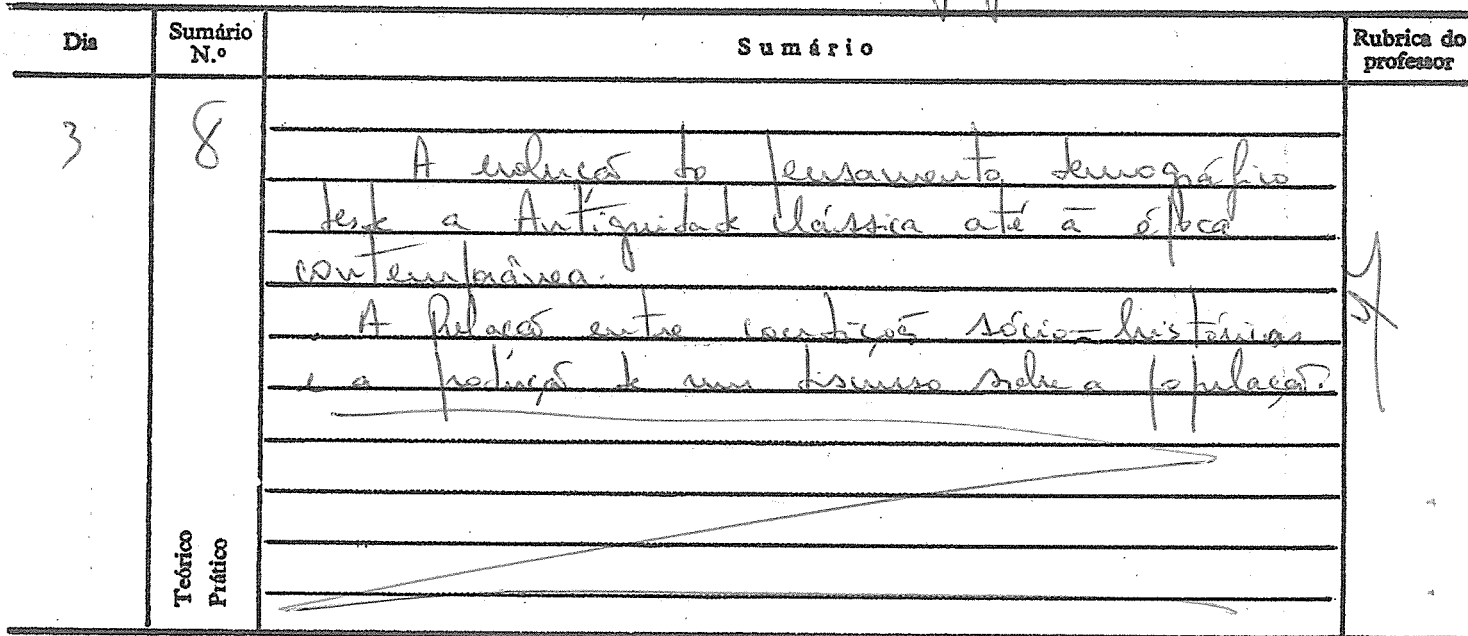 Dia Sumário N.º Sumário Rubrica do professor
3 8
A evolução do pensamento demográfico
desde a Antiguidade Clássica até à época
contemporânea.
A Relação entre condições sócio-históricas
e a produção de um discurso sobre a população.
Teórico
Prático